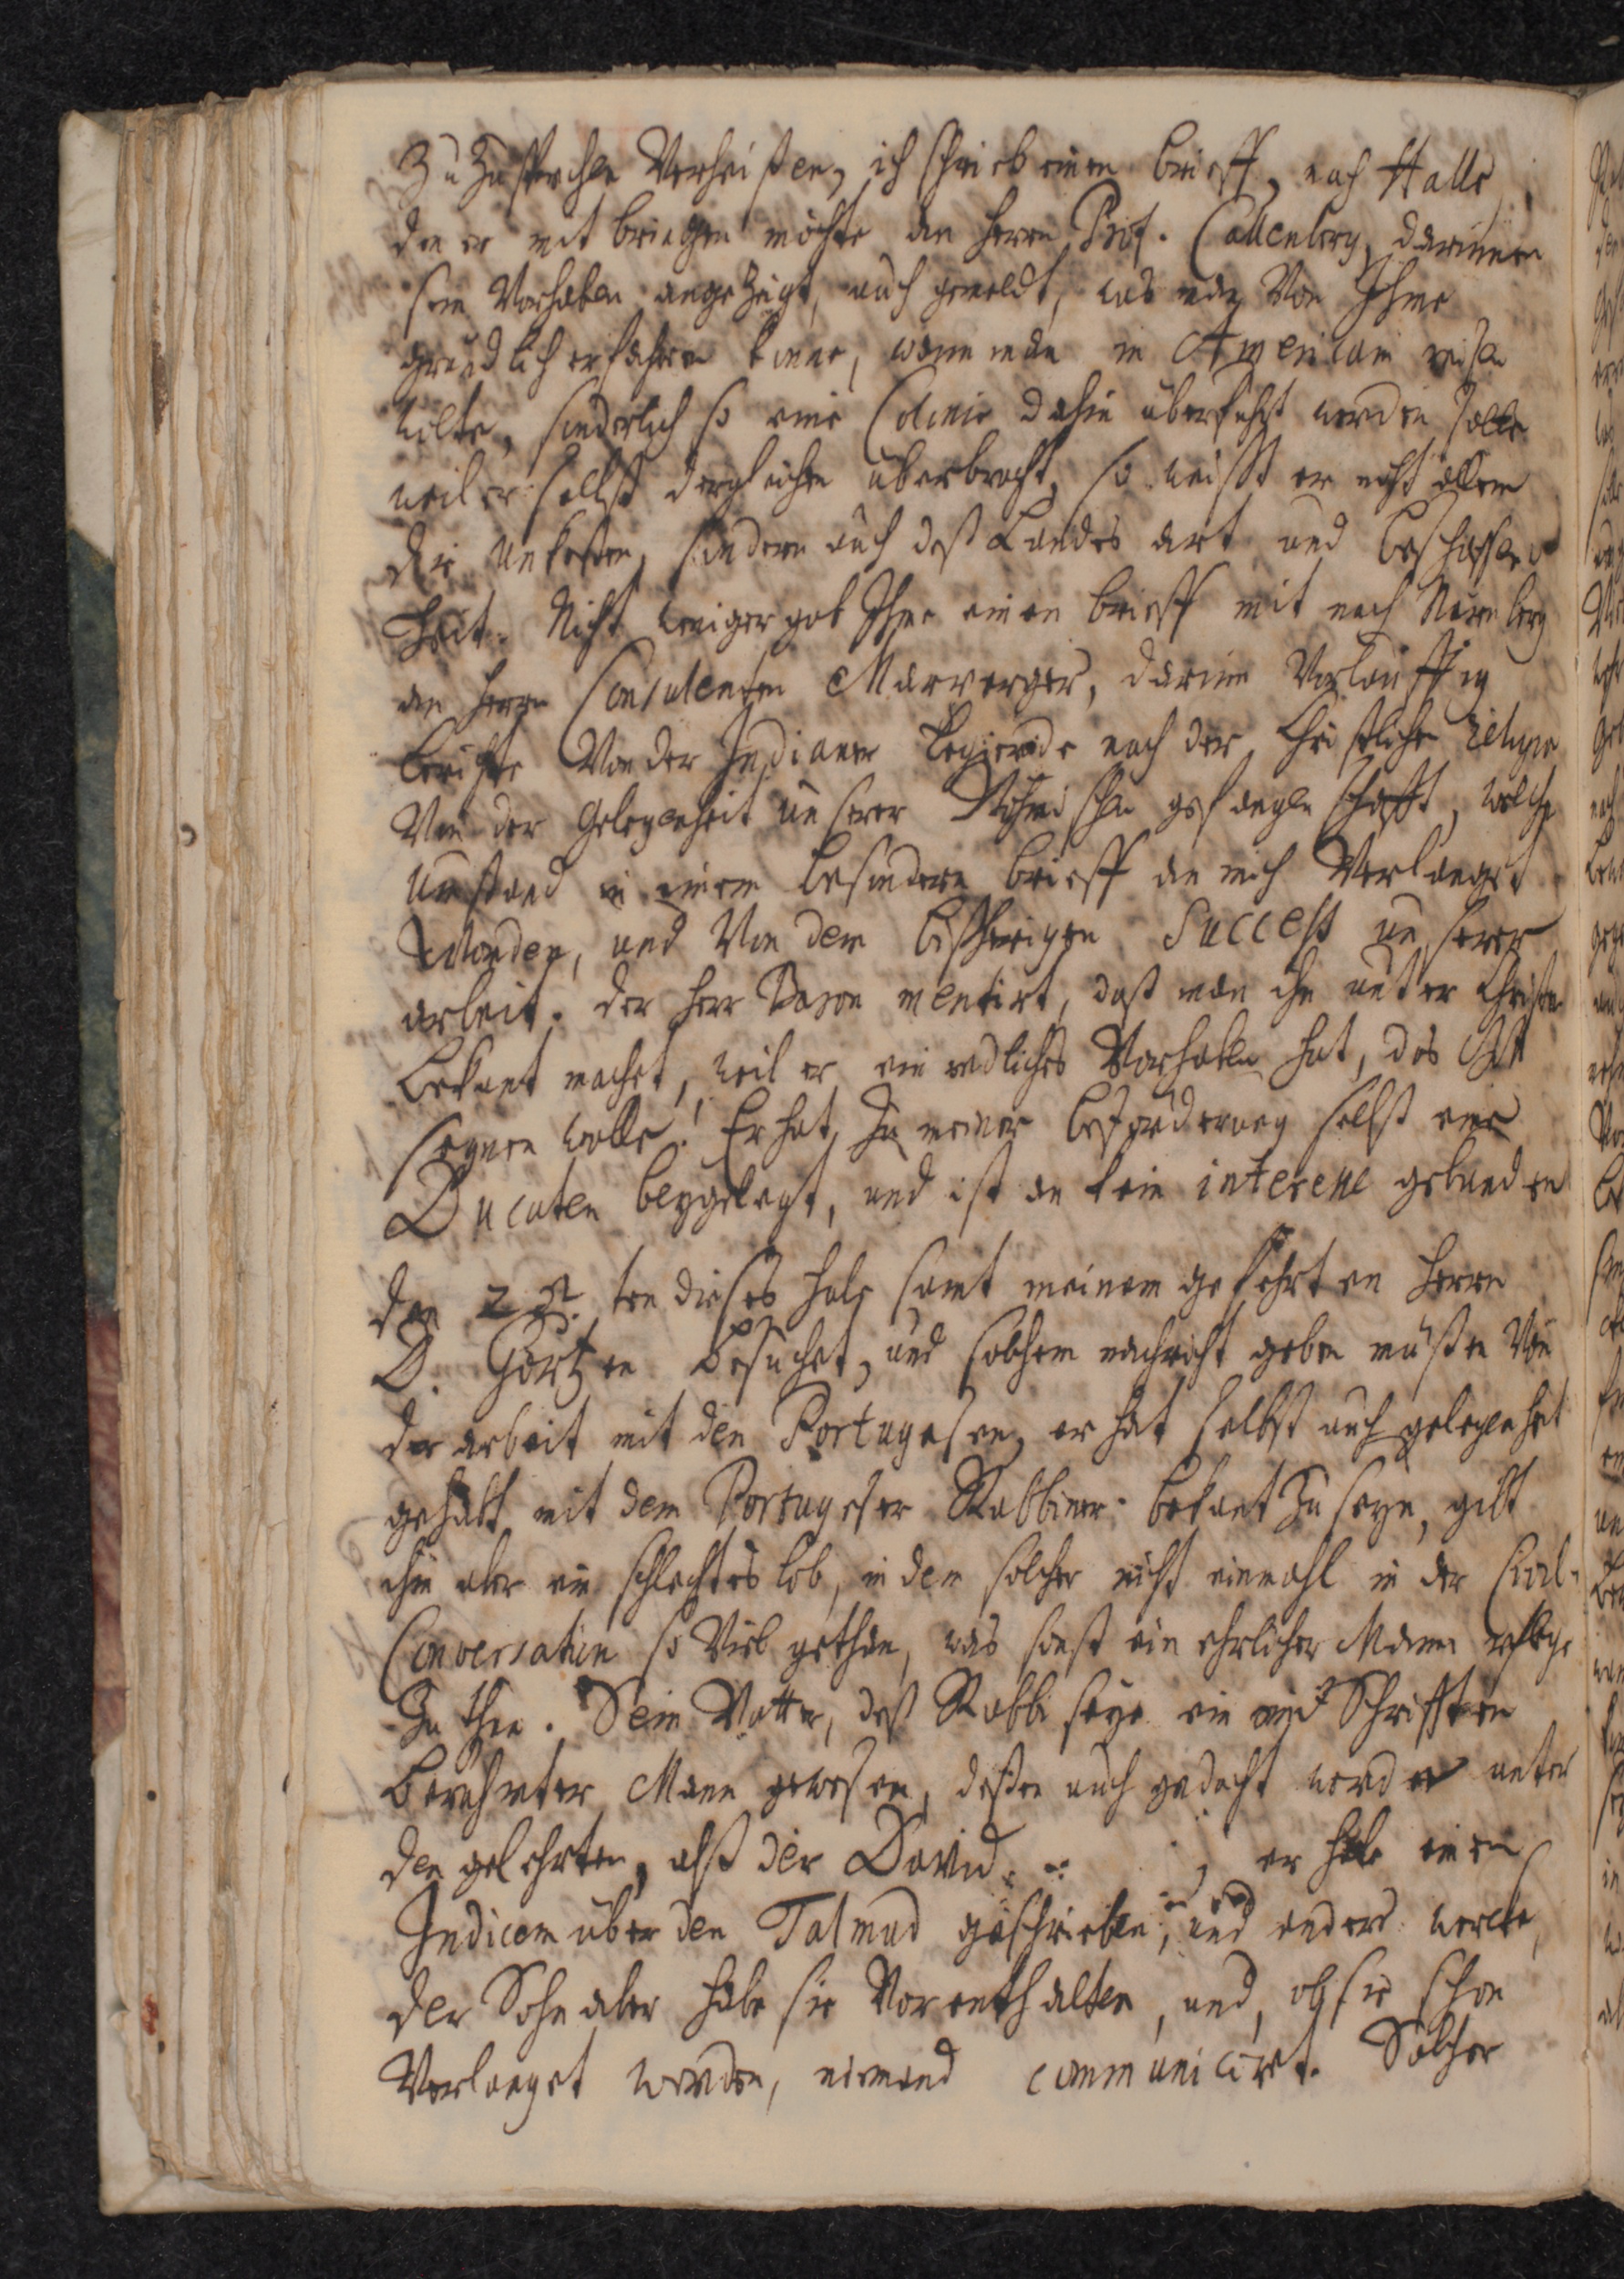 zu zusprechen Verheißen, ich schrieb einen brieff, nach Halle
den er mit bringen möchte an Herrn Prof. Callenberg, darinnen
sein Vorhaben angezeigt, auch gemeldt, was man Von Ihme
gründlich erfahren könne, wann man in Americam reisen
wolte, sonderlich so eine Colonie dahin überführt werden solte
weil er selbst dergleichen überbracht, so weißt er nicht allein
die Unkosten, sondern auch deß Landes art und beschaffen
heit. Nicht weniger gab Ihme einen brieff mit nach Nürnberg
an Herrn Consulenten Marperger, darinn Vorläuffig
berichte Von der Indianer Begierde nach der Christlichen
Von der Gelegenheit unserer gefangenschafft, welche
Umstand in einem besondern brieff an mich Verlanget
worden, und Von dem bißherigen Success unserer
arbeit. der Herr Baron meritirt, daß man ihn unter Christen
bekant machet, weil er ein redliches Vorhaben hat, das Gott
segnen wolle! Er hat zu meiner beförderung selbst eine
Ducaten beygelegt, und ist an kein interesse gebunden
den ten dieses habe samt meinem gefehrten Herrn
D. Gortzen besuchet, und solchem nachricht geben müßen Von
der arbeit mit den Portugesen, er hat selbst auch gelegenheit
gehabt mit dem Portugeser Rabbiner bekant zu seyn, gibt
ihm aber ein schlechtes lob, in dem solcher nicht einmahl in der Civil-
Conversation so Viel gethan, was sonst ein ehrlicher Mann pflege
zu thun. Sein Vatter, deß Rabbi seye ein mit Schrifften
berühmter Mann gewesen, deßen auch gedacht werde unter
den gelehrten, alß der David , er habe einen
Indicem über den Talmud geschrieben, und andere wercke,
der Sohn aber habe sie Vorenthalten, und, ob sie schon
Verlanget worden, niemand communicirt. Solcher